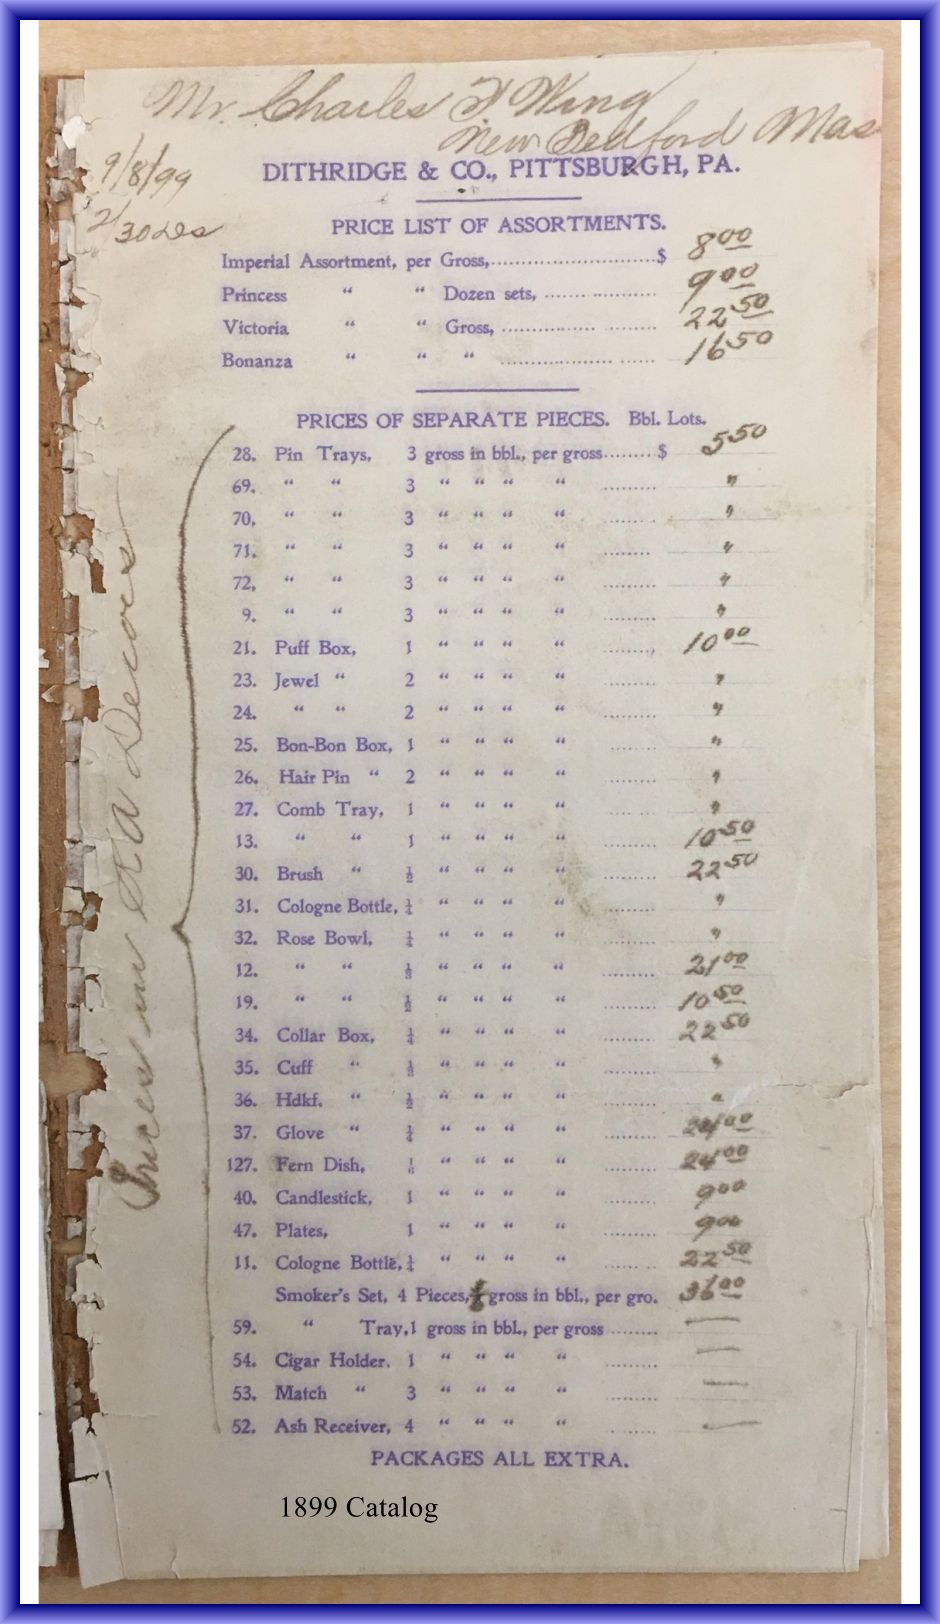 Mr. Charles F Wing
New Bedford Mas
9/8/99
2/30
DITHRIDGE & CO., PITTSBURGH, PA.
PRICE LIST OF ASSORTMENTS.
Imperial Assortment, per Gross,.............................$ 8 00
Princess " " Dozen sets, .................... 9 00
Victoria " " Gross, .......................... 22 50
Bonanza " " " .......................... 16 50
PRICES OF SEPARATE PIECES. Bbl. Lots.
28. Pin Trays, 3 gross in bbl., per gross........ $ 5 50
69. " " 3 " " " " ......... "
70, " " 3 " " " " ......... "
71. " " 3 " " " " ......... "
72, " " 3 " " " " ......... "
9. " " 3 " " " " ......... "
21. Puff Box, 1 " " " " ......... 10 00
23. Jewel " 2 " " " " ......... "
24. " " 2 " " " " ......... "
25. Bon-Bon Box, 1 " " " " ......... "
26. Hair Pin " 2 " " " " ......... "
27. Comb Tray, 1 " " " " ......... "
13. " " 1 " " " " ......... 10 50
30. Brush " ½ " " " " ......... 22 50
31. Cologne Bottle, ¼ " " " " ......... "
32. Rose Bowl, ¼ " " " " ......... "
12. " " ⅓ " " " " ......... 21 00
19. " " ½ " " " " ......... 10 50
34. Collar Box, ¼ " " " " ......... 22 50
35. Cuff " ½ " " " " ......... "
36. Hdkf. " ½ " " " " ......... "
37. Glove " ¼ " " " " ......... 24 00
127. Fern Dish, " " " " ......... 24 00
40. Candlestick, 1 " " " " ......... 9 00
47. Plates, 1 " " " " ......... 9 00
11. Cologne Bottle, ¼ " " " " ......... 22 50
Smoker's Set, 4 Pieces, gross in bbl., per gro. 36 00
59. " Tray, 1 gross in bbl., per gross ......... —
54. Cigar Holder, 1 " " " " ......... —
53. Match " 3 " " " " ......... —
52. Ash Receiver, 4 " " " " ......... —
PACKAGES ALL EXTRA.
1899 Catalog